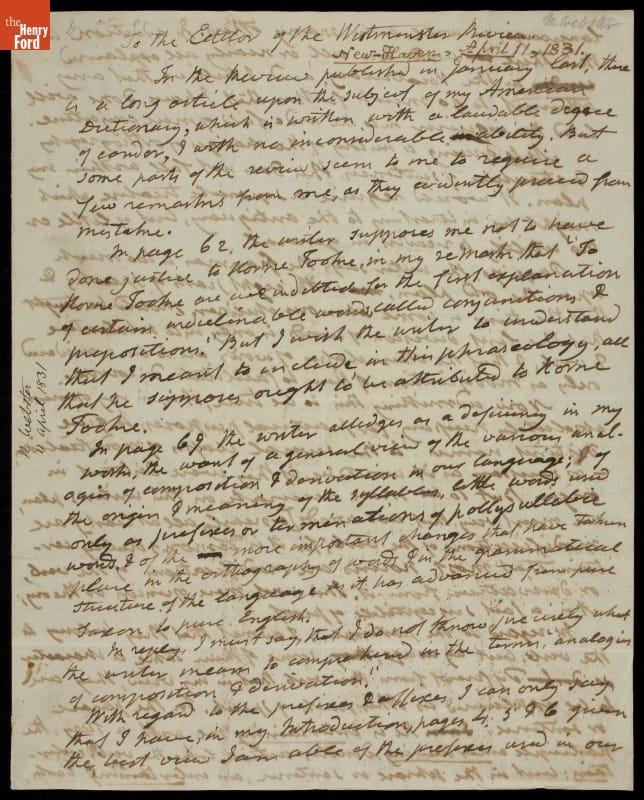 the
Henry
Ford
N. Webster
To the Editor of the Westminster Review
New-Haven, April 11, 1831.
In the Review published in January last, there
is a long article upon the subject of my American
Dictionary, which is written with a laudable degree
of candor, & with no inconsiderable ability. But
some parts of the review seem to me to require a
few remarks from me, as they evidently proceed from
mistake.
In page 62, the writer supposes me not to have
done justice to Horne Tooke, in my remark that "To
Horne Tooke are we indebted for the first explanation
of certain indeclinable words, called conjunctions &
prepositions." But I wish the writer to understand
that I meant to include in this phraseology, all
that he supposes ought to be attributed to Horne
Tooke.
N Webster
11 april 1831
In page 69, the writer alledges as a deficiency in my
work, the want of a general view of the various anal-
ogies of composition & derivation in our language; & of
the origin & meaning of the syllables, little words used
only as prefixes or terminations of pollysyllabic
words, & of the more important changes that have taken
place in the orthography of words & in the grammatical
structure of the language, as it has advanced from pure
Saxon to pure English.
In reply, I must say, that I do not know precisely what
the writer means to comprehend in the terms, "analogies
of composition & derivation."
With regard to the prefixes & affixes, I can only say
that I have, in my Introduction, pages 4, 5 & 6 given
the best view I am able of the prefixes used in our